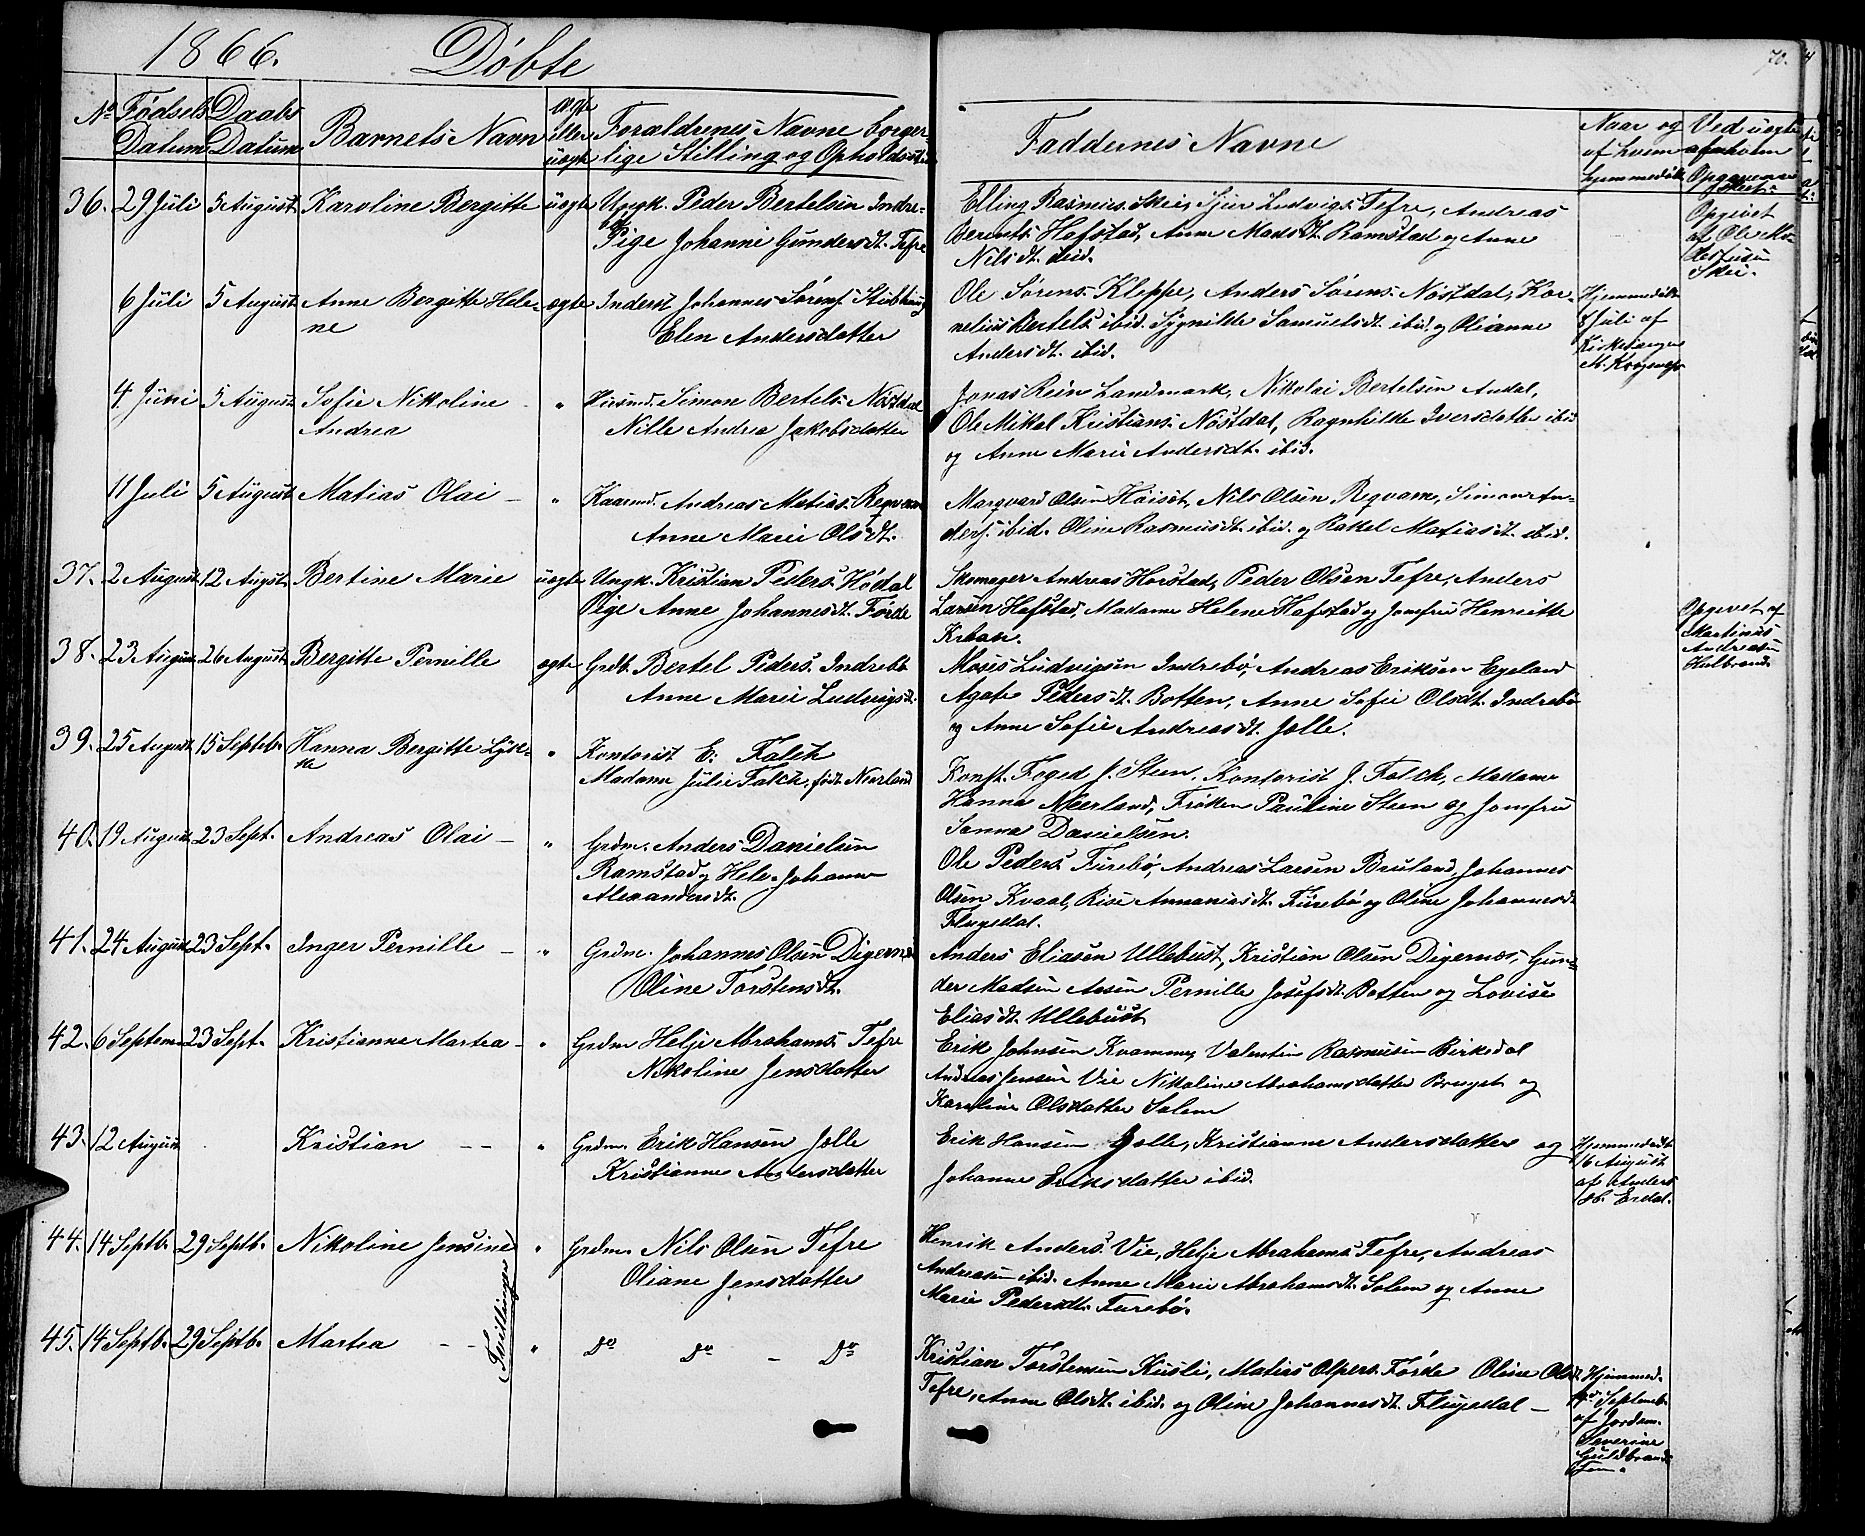 1866. Døbte
70.
No Fødsels Datum Daabs Datum Barnets Navn ægte eller uægte Forældrenes Navne borgerlige Stilling og Opholdssted
Faddernes Navne
Naar og af hvem hjemmedøbt
Ved uægte af hvem Opgivelsen skeet
36. 29 Juli 5 August Karoline Bergitte uægte Ungk. Peder Bertelsen Indrebø
Pige Johanne Gundersdt. Tefre
Elling Rasmus. Skei, Sjur Ludvigs. Tefre, Andreas
Berents. Hafstad, Anne Madsdt. Ramstad og Anne
Nilsdt. ibid.
Opgivet
af Ole Mo-
destusen
Skei.
6 Juli 5 August Anne Bergitte Hele-
ne
ægte Inderst Johannes Sørens. Stubhaug
Elen Andersdatter
Ole Sørens. Kleppe, Anders Sørens. Nøstdal, Kor-
nelius Bertels. ibid. Sygnilde Samuelsdt. ibid. og Olianne
Andersdt. ibid.
Hjemmedøbt
8 Juli af
Kirkesanger
M.
4. Juni 5 August Sofie Nikoline
Andrea
" Huusmd. Simon Bertels. Nøstdal
Nille Andrea Jakobsdatter
Jonas Rein Landmark, Nikolai Bertelsen Andal,
Ole Mikal Kristians. Nøstdal, Ragnhilde Iversdatter ibid
og Anne Marie Andersdt. ibid.
11 Juli 5 August Matias Olai -
" Andreas Matias. Reqvam
Anne Marie Olsdt.
Marqvard Olsen Høiset, Nils Olsen Reqvam, Simon An-
ders. ibid. Oline Rasmusdt. ibid. og Rakel Matiasdt. ibid.
37. 2 August 12 August Bertine Marie uægte Ungk. Kristian Peders. Hødal
Pige Anne Johannesdt. Førde
Skomager Andreas Horstad, Peder Olsen Tefre, Anders
Larsen Hafstad, Madame Helene Hafstad og Jomfru Henriette
Opgivet af
Martinus
Andreasen
38. 23 August 26 August Bergitte Pernille ægte Grdb. Bertel Peders. Indrebø
Anne Marie Ludvigsdt.
Mons Ludvigsen Indrebø, Andreas Eriksen Egeland
Agate Pedersdt. Botten, Anne Sofie Olsdt. Indrebø
og Anne Sofie Andreasdt. Jolle.
39. 25 August 15 Septeb. Hanna Bergitte Lyk-
ke
" Kontorist E. Falch
Madame Julie Falch, født Neerland
Konst. Foged J. Steen, Kontorist J. Falch, Madame
Hanna Neerland, Frøken Pauline Steen og Jomfru
Sanna Danielsen.
40. 19 August 23 Sept. Andreas Olai - " Grdm. Anders Danielsen
Ramstad og Hele. Johanne
Alexandersdt.
Ole Peders. Furebø, Andreas Larsen Bruland, Johannes
Olsen Kvaal, Rise Annaniasdt. Furebø og Oline Johannesdt.
Flugedal.
41. 24 August 23 Sept. Inger Pernille - " Grdm. Johannes Olsen Digernes
Oline Torstensdt.
Anders Eliasen Ullebust, Kristian Olsen Digernes, Gun-
der Madsen Aasen Pernille Josefsdt. Botten og Lovise
Eliasdt. Ullebust
42. 6 Septem 23 Sept. Kristianne Martea - " Grdm Helje Abrahams. Tefre
Nikoline Jensdatter
Erik Johnsen Kvamme, Valentin Rasmusen Birkedal
Andreas Jensen Vie Nikoline Abrahamsdatter Bruget og
Karoline Olsdatter Solem
43. 12 August Kristian - - " Grdm. Erik Hansen Jolle
Kristianne Andersdatter
Erik Hansen Jolle, Kristianne Andersdatter og
Johanne Eriksdatter ibid.
Hjemmedøbt
16 August
af Anders
Erdal.
44. 14 Septb. 29 Septb. Nikoline Jensine " Grdm. Nils Olsen Tefre
Oliane Jensdatter
Henrik Anders. Vie, Helje Abrahams. Tefre, Andreas
Andreasen ibid. Anne Marie Abrahamsdt. Solem og Anne
Marie Pedersdt. Furebø.
Tvillinger
45. 14 Septb. 29 Septb. Martea - - " Do Do - Do
Kristian Torstensen Kusli, Matias Olpers. Førde Oline Olsdt.
Tefre, Anne Olsdt. ibid. og Oline Johannesdt. Flugedal -
Hjemmed.
Septemb.
af Jordem.
Severine